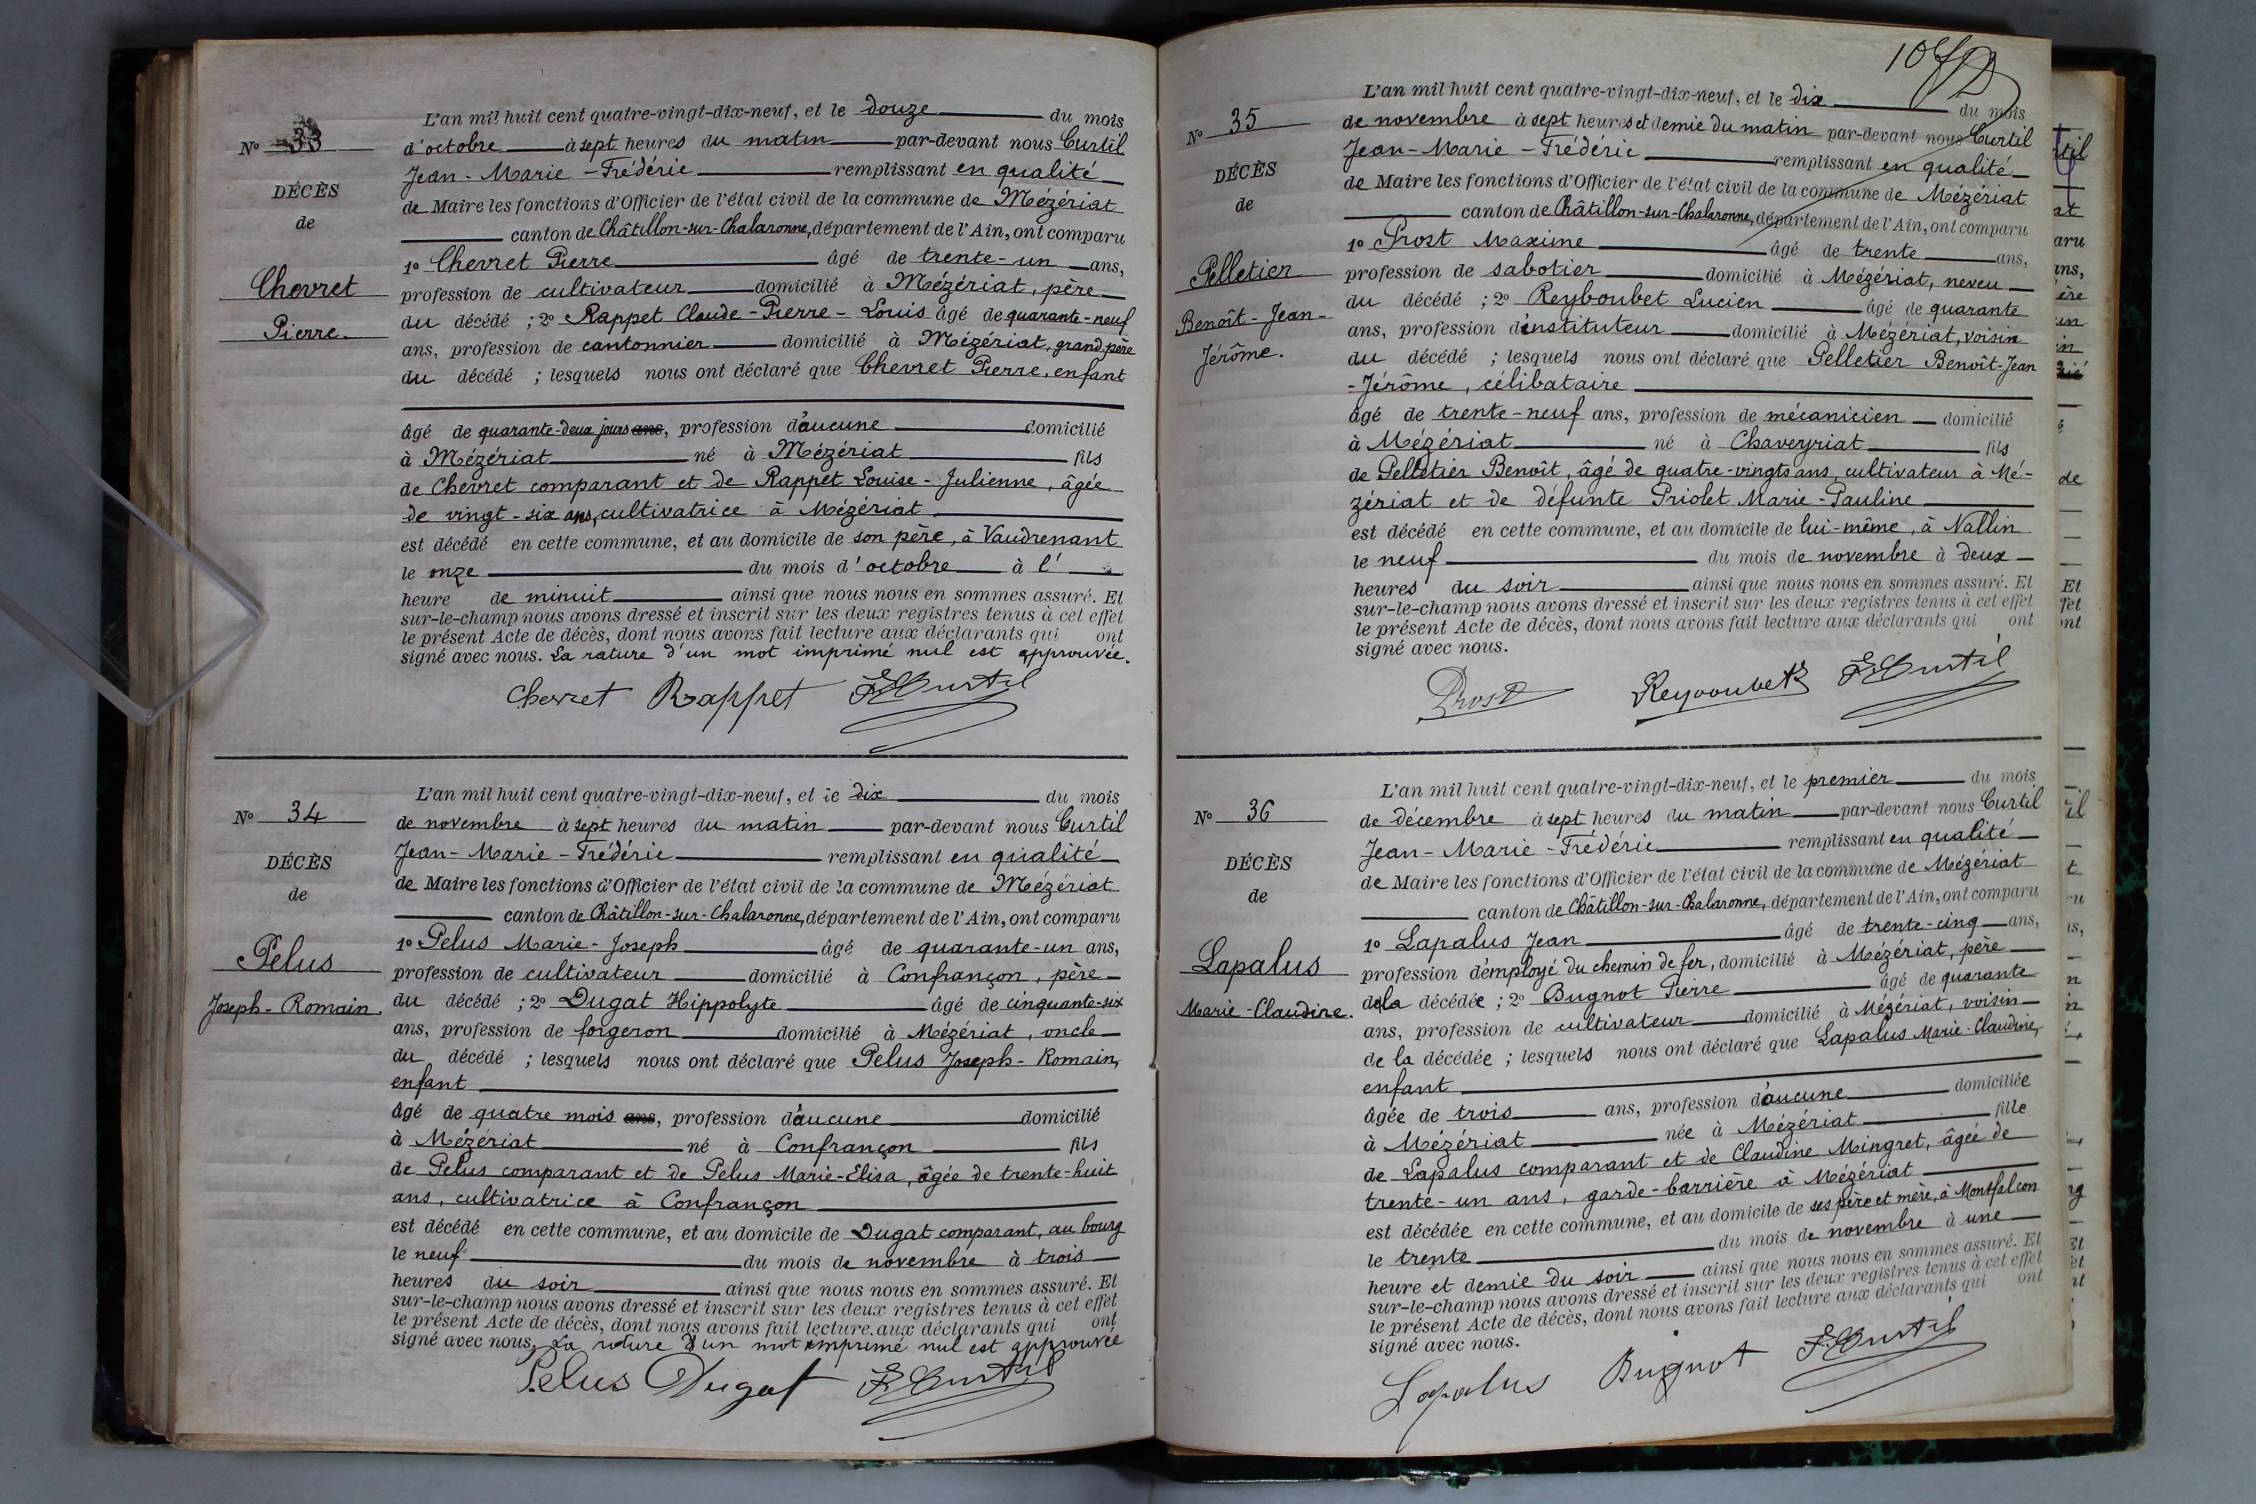 N° 33
DÉCÈS
de
Chevret
Pierre.
L'an mil huit cent quatre-vingt-dix-neuf, et le douze du mois
d'octobre à sept heures du matin par-devant nous Curtil
Jean-Marie-Frédéric remplissant en qualité
de Maire les fonctions d'Officier de l'état civil de la commune de Mézériat
canton de Châtillon-sur-Chalaronne, département de l'Ain, ont comparu
1° Chevret Pierre âgé de trente-un ans,
profession de cultivateur domicilié à Mézériat, père
du décédé ; 2° Rappet Claude-Pierre-Louis âgé de quarante-neuf
ans, profession de cantonnier domicilié à Mézériat, grand père
du décédé ; lesquels nous ont déclaré que Chevret Pierre, enfant
âgé de quarante-deux jours ans, profession d'aucune domicilié
à Mézériat né à Mézériat fils
de Chevret comparant et de Rappet Louise-Julienne, âgée
de vingt-six ans, cultivatrice à Mézériat
est décédé en cette commune, et au domicile de son père, à Vaudrenant
le onze du mois d'octobre à l'
heure de minuit ainsi que nous nous en sommes assuré. Et
sur-le-champ nous avons dressé et inscrit sur les deux registres tenus à cet effet
le présent Acte de décès, dont nous avons fait lecture aux déclarants qui ont
signé avec nous. La rature d'un mot imprimé nul est approuvée.
Chevret Rappet F Curtil
N° 34
DÉCÈS
de
Pelus
Joseph-Romain.
L'an mil huit cent quatre-vingt-dix-neuf, et le dix du mois
de novembre à sept heures du matin par-devant nous Curtil
Jean-Marie-Frédéric remplissant en qualité
de Maire les fonctions d'Officier de l'état civil de la commune de Mézériat
canton de Châtillon-sur-Chalaronne, département de l'Ain, ont comparu
1° Pelus Marie-Joseph âgé de quarante-un ans,
profession de cultivateur domicilié à Confrançon, père
du décédé ; 2° Dugat Hippolyte âgé de cinquante-six
ans, profession de forgeron domicilié à Mézériat, oncle
du décédé ; lesquels nous ont déclaré que Pelus Joseph-Romain,
enfant
âgé de quatre mois ans, profession d'aucune domicilié
à Mézériat né à Confrançon fils
de Pelus comparant et de Pelus Marie-Elisa, âgée de trente-huit
ans, cultivatrice à Confrançon
est décédé en cette commune, et au domicile de Dugat comparant, au bourg
le neuf du mois de novembre à trois
heures du soir ainsi que nous nous en sommes assuré. Et
sur-le-champ nous avons dressé et inscrit sur les deux registres tenus à cet effet
le présent Acte de décès, dont nous avons fait lecture aux déclarants qui ont
signé avec nous. La rature d'un mot imprimé nul est approuvée
Pelus Dugat F Curtil
10
N° 35
DÉCÈS
de
Pelletier
Benoît-Jean-
Jérôme.
L'an mil huit cent quatre-vingt-dix-neuf, et le dix du mois
de novembre à sept heures et demie du matin par-devant nous Curtil
Jean-Marie-Frédéric remplissant en qualité
de Maire les fonctions d'Officier de l'état civil de la commune de Mézériat
canton de Châtillon-sur-Chalaronne, département de l'Ain, ont comparu
1° Prost Maxime âgé de trente ans,
profession de sabotier domicilié à Mézériat, neveu
du décédé ; 2° Reyboubet Lucien âgé de quarante
ans, profession d'instituteur domicilié à Mézériat, voisin
du décédé ; lesquels nous ont déclaré que Pelletier Benoît-Jean
-Jérôme, célibataire
âgé de trente-neuf ans, profession de mécanicien domicilié
à Mézériat né à Chaveyriat fils
de Pelletier Benoît, âgé de quatre-vingts ans, cultivateur à Mé-
zériat et de défunte Priolet Marie-Pauline
est décédé en cette commune, et au domicile de lui-même, à Nallin
le neuf du mois de novembre à deux
heures du soir ainsi que nous nous en sommes assuré. Et
sur-le-champ nous avons dressé et inscrit sur les deux registres tenus à cet effet
le présent Acte de décès, dont nous avons fait lecture aux déclarants qui ont
signé avec nous.
Prost Reyboubet F Curtil
N° 36
DÉCÈS
de
Lapalus
Marie-Claudine.
L'an mil huit cent quatre-vingt-dix-neuf, et le premier du mois
de décembre à sept heures du matin par-devant nous Curtil
Jean-Marie-Frédéric remplissant en qualité
de Maire les fonctions d'Officier de l'état civil de la commune de Mézériat
canton de Châtillon-sur-Chalaronne, département de l'Ain, ont comparu
1° Lapalus Jean âgé de trente-cinq ans,
profession d'employé du chemin de fer, domicilié à Mézériat, père
de la décédée ; 2° Bugnot Pierre âgé de quarante
ans, profession de cultivateur domicilié à Mézériat, voisin
de la décédée ; lesquels nous ont déclaré que Lapalus Marie-Claudine,
enfant
âgée de trois ans, profession d'aucune domiciliée
à Mézériat née à Mézériat fille
de Lapalus comparant et de Claudine Mingret, âgée de
trente-un ans, garde-barrière à Mézériat
est décédée en cette commune, et au domicile de ses père et mère, à Montfalcon
le trente du mois de novembre à une
heure et demie du soir ainsi que nous nous en sommes assuré. Et
sur-le-champ nous avons dressé et inscrit sur les deux registres tenus à cet effet
le présent Acte de décès, dont nous avons fait lecture aux déclarants qui ont
signé avec nous.
Lapalus Bugnot F Curtil